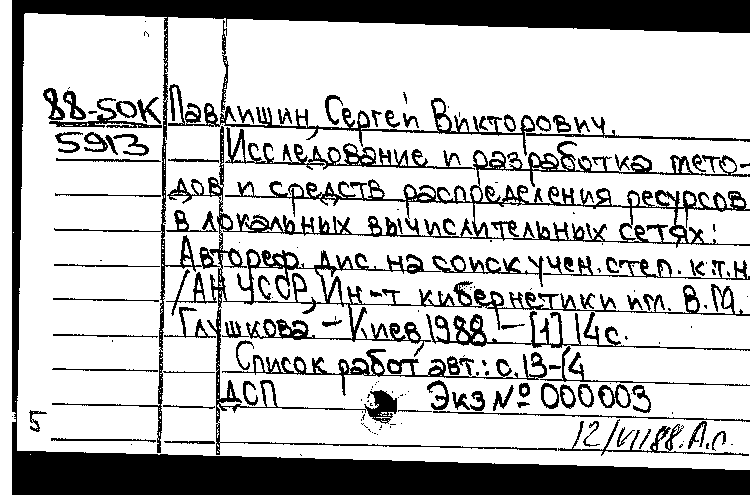 88-50К Павлишин, Сергей Викторович.
5913 Исследование и разработка мето-
дов и средств распределения ресурсов
в локальных вычислительных сетях:
Автореф. дис. на соиск. учен. степ. к.т.н
/АН УССР, Ин-т кибернетики им. В.М.
Глушкова. – Киев, 1988. – [1] 14 с.
Список работ авт.: с. 13-14
ДСП Экз № 000003
5 12/VII88. А.п.